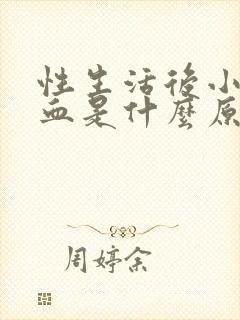 性生活後小
血是什麼原
周婷余